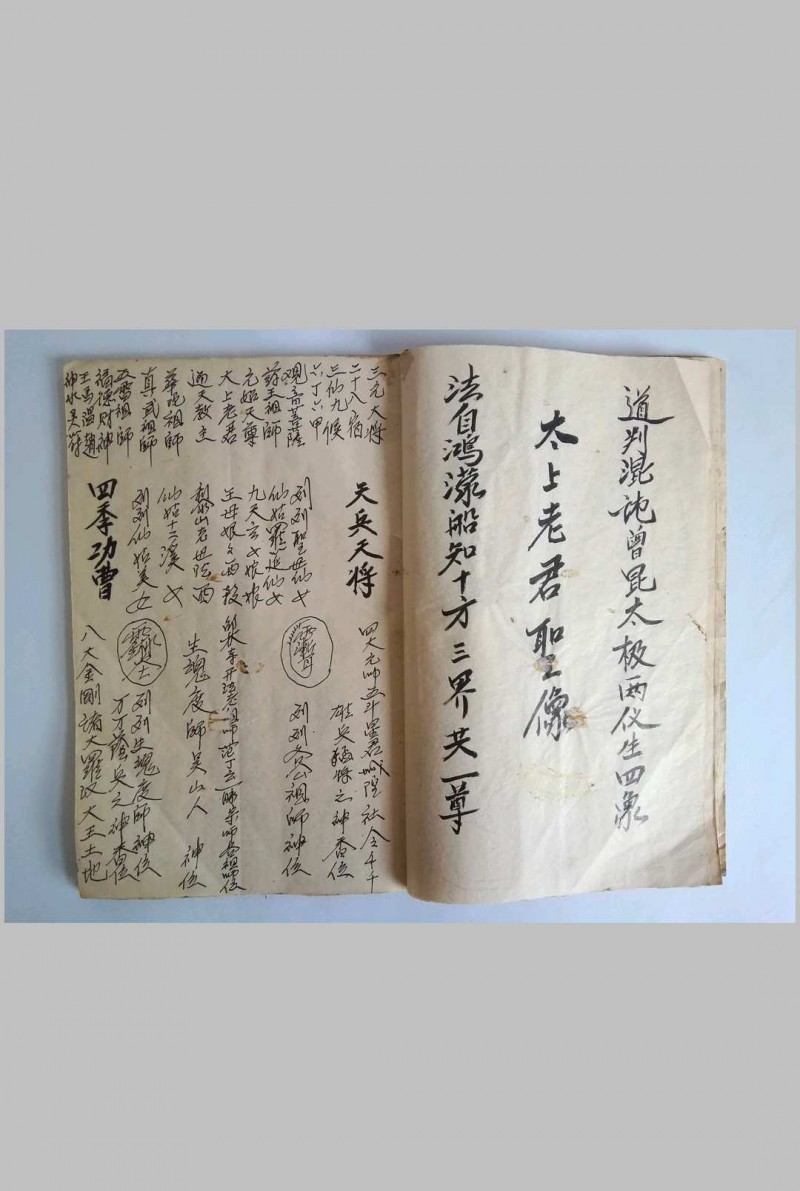 道判混沌曾昆太极两仪生四象
太上老君聖像
法自鴻濛船知十方三界共一尊
三元大将
二十八宿
三仙九候
六丁六甲
观音菩薩
药王祖師
元始天尊
太上老君
通天教主
華陀祖師
真武祖師
五雷祖師
福德财神
王馬温趙
神水吴符
天兵天将
列列聖母仙女
仙姑羅延仙女
九天玄女娘娘
王母娘々西殺
黎山老母陀西
仙姑十二溪女
列列仙姑美女
四季功曹
四大元帅五斗星君城隍社令千千
雄兵猛将之神香位
列列各公祖師神位
生魂度師吴山人 神位
列列生魂度師神位
万万蔭兵之神香位
八大金剛诸大羅汉大王土地